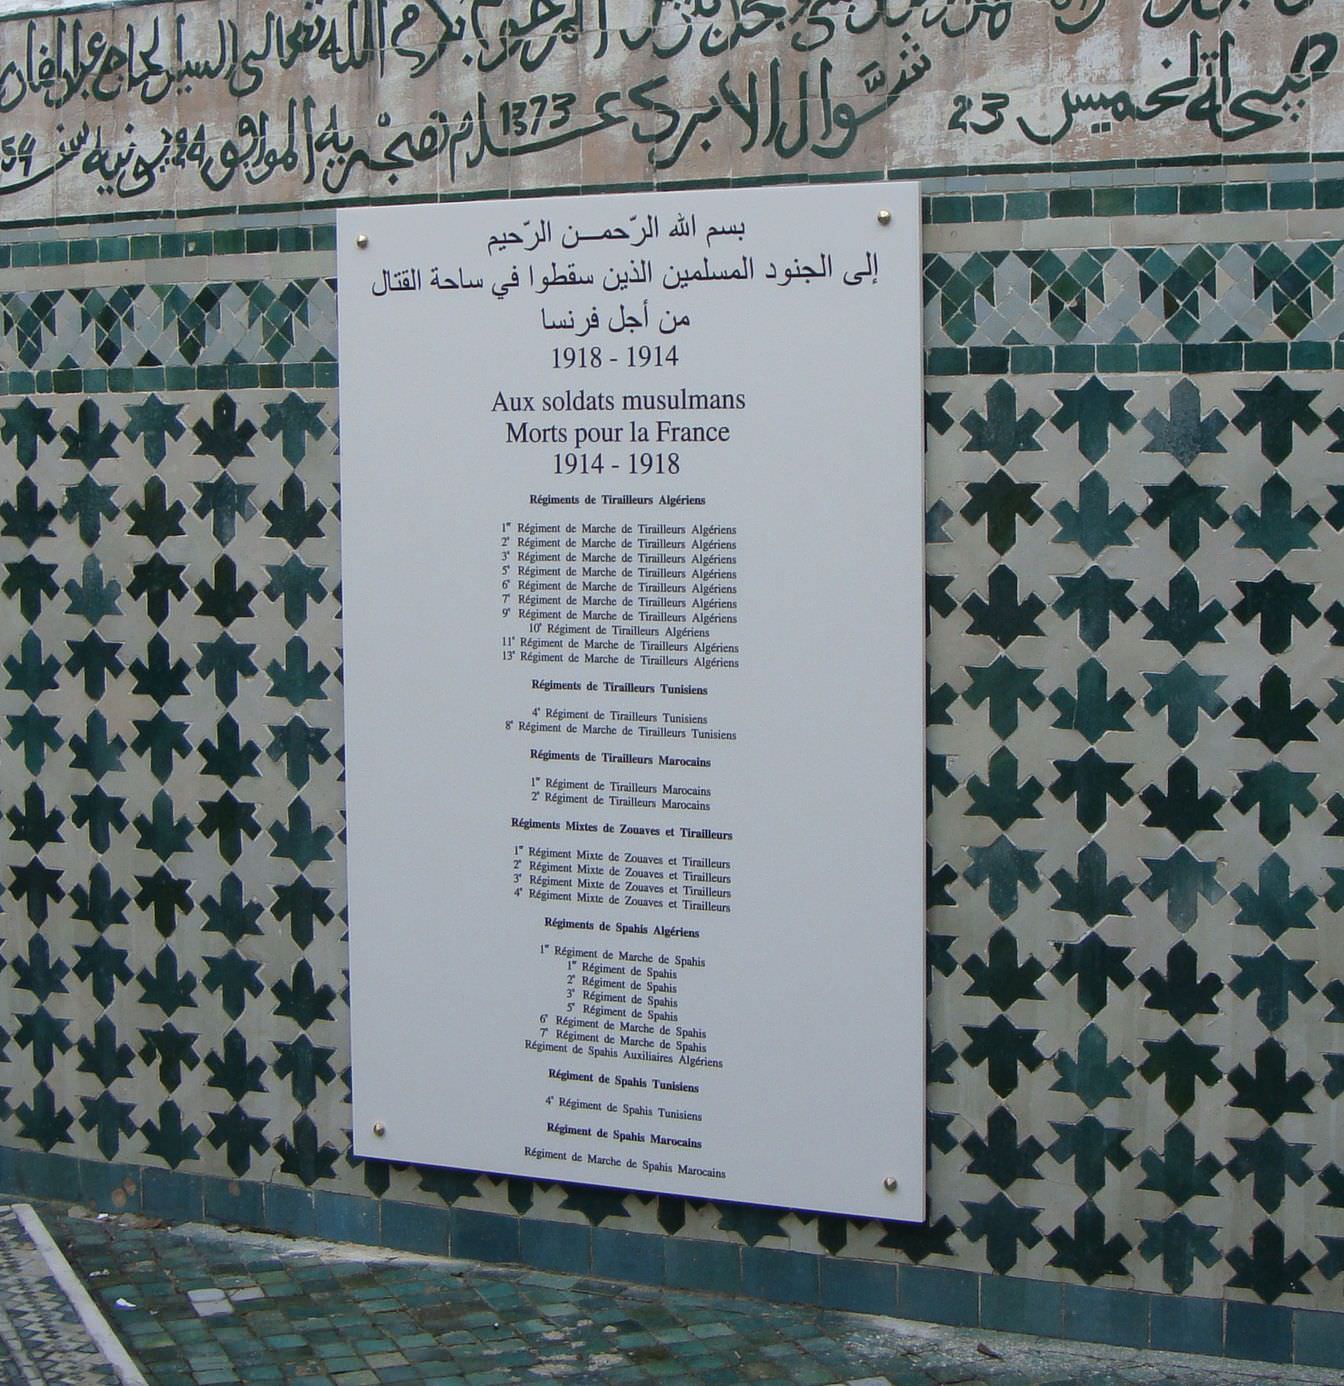 المرحوم بكرم الله تعالى السيد الحاج عبد
صبيحة الخميس 23 شوال الأبرك عام 1373 هجرية الموافق 24 يونيه سنة 54
بسم الله الرّحمــن الرّحيم
إلى الجنود المسلمين الذين سقطوا في ساحة القتال
من أجل فرنسا
1914 - 1918
Aux soldats musulmans
Morts pour la France
1914 - 1918
Régiments de Tirailleurs Algériens
1er Régiment de Marche de Tirailleurs Algériens
2e Régiment de Marche de Tirailleurs Algériens
3e Régiment de Marche de Tirailleurs Algériens
5e Régiment de Marche de Tirailleurs Algériens
6e Régiment de Marche de Tirailleurs Algériens
7e Régiment de Marche de Tirailleurs Algériens
9e Régiment de Marche de Tirailleurs Algériens
10e Régiment de Tirailleurs Algériens
11e Régiment de Marche de Tirailleurs Algériens
13e Régiment de Marche de Tirailleurs Algériens
Régiments de Tirailleurs Tunisiens
4e Régiment de Tirailleurs Tunisiens
8e Régiment de Marche de Tirailleurs Tunisiens
Régiments de Tirailleurs Marocains
1er Régiment de Tirailleurs Marocains
2e Régiment de Tirailleurs Marocains
Régiments Mixtes de Zouaves et Tirailleurs
1er Régiment Mixte de Zouaves et Tirailleurs
2e Régiment Mixte de Zouaves et Tirailleurs
3e Régiment Mixte de Zouaves et Tirailleurs
4e Régiment Mixte de Zouaves et Tirailleurs
Régiments de Spahis Algériens
1er Régiment de Marche de Spahis
1er Régiment de Spahis
2e Régiment de Spahis
3e Régiment de Spahis
5e Régiment de Spahis
6e Régiment de Marche de Spahis
7e Régiment de Marche de Spahis
Régiment de Spahis Auxiliaires Algériens
Régiment de Spahis Tunisiens
4e Régiment de Spahis Tunisiens
Régiment de Spahis Marocains
Régiment de Marche de Spahis Marocains